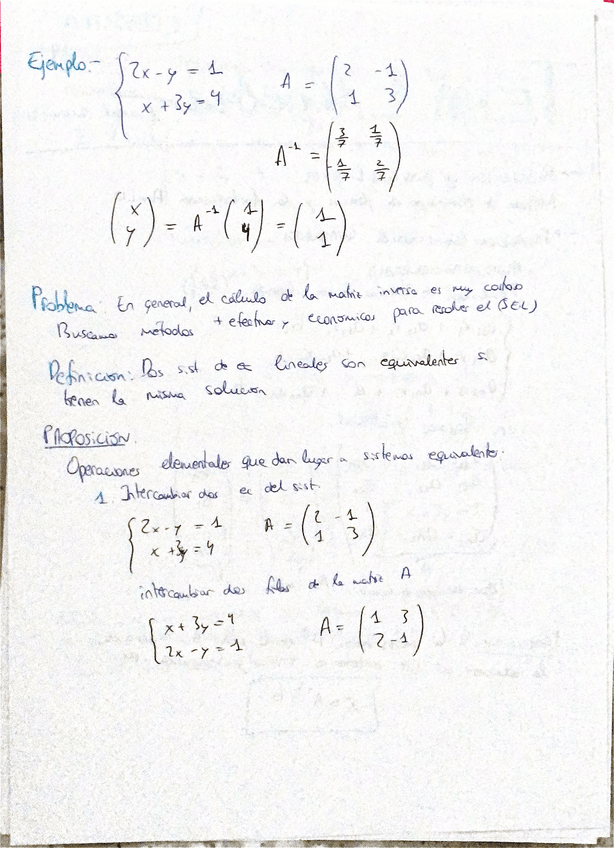 Ejemplo:- { 2x - y = 1
x + 3y = 4
A = ( 2 -1
1 3 )
A⁻¹ = ( 3/7 1/7
-1/7 2/7 )
( x
y ) = A⁻¹ ( 1
4 ) = ( 1
1 )
Problema: En general, el cálculo de la matriz inversa es muy costoso
Buscamos métodos + efectivos y economicos para resolver el (SEL)
Definicion: Dos sist de ec lineales son equivalentes si
tienen la misma solucion
PROPOSICIÓN.
Operaciones elementales que dan lugar a sistemas equivalentes.
1. Intercambiar dos ec del sist.
{ 2x - y = 1
x + 3y = 4
A = ( 2 -1
1 3 )
intercambiar dos filas de la matriz A
{ x + 3y = 4
2x - y = 1
A = ( 1 3
2 -1 )